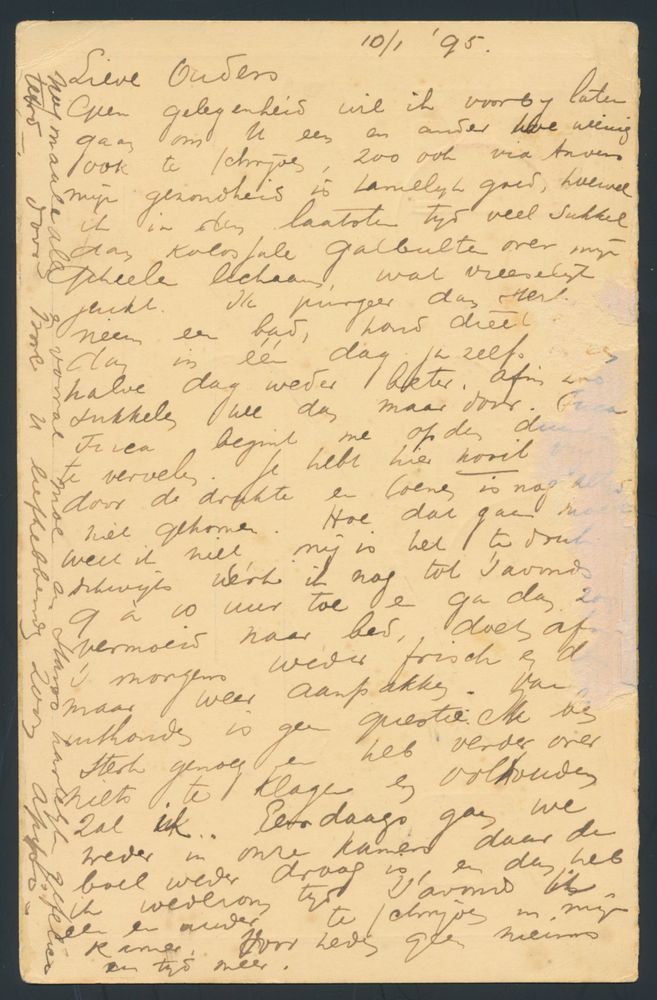 10/1 '95.
Lieve Ouders
Geen gelegenheid wil ik voorby laten
gaan om U een en ander hoe weinig
ook te schrijven, zoo ook via Anvers
mijn gezondheid is tamelijk goed, hoewel
ik in den laatsten tijd veel sukkel
aan kolossale galbulten over mijn
geheele lichaam, wat vreeselijk
jeukt. Ik purgeer dan sterk
neem een bad, houd dieet
dan in één dag ja zelfs
halve dag weder beter. afin zoo
sukkelen we dan maar door.
begint me op den duur
te vervelen. Je hebt hier nooit
door de drukte en Coenen is nog altijd
niet gekomen. Hoe dat gaan moet
weet ik niet mij is het te druk
dikwijls werk ik nog tot 's avonds
9 à 10 uur toe en ga dan zoo
vermoeid naar bed, doch af
's morgens weder frisch en
maar weer aanpakken. Van
uithouden is geen questie. Ik ben
sterk genoeg en heb verder over
niets te klagen en volhouden
zal ik.. Eerdaags gaan we
weder in onze kamers daar de
boel weder droog is, en dan heb
ik wederom tijd 's avonds
een en ander te schrijven in mijn
kamer. Voor heden geen nieuws
en tijd meer.
nog maals allen en vooral moe en hartelijk gefelici
teerd, door Uw U liefhebbende zoon